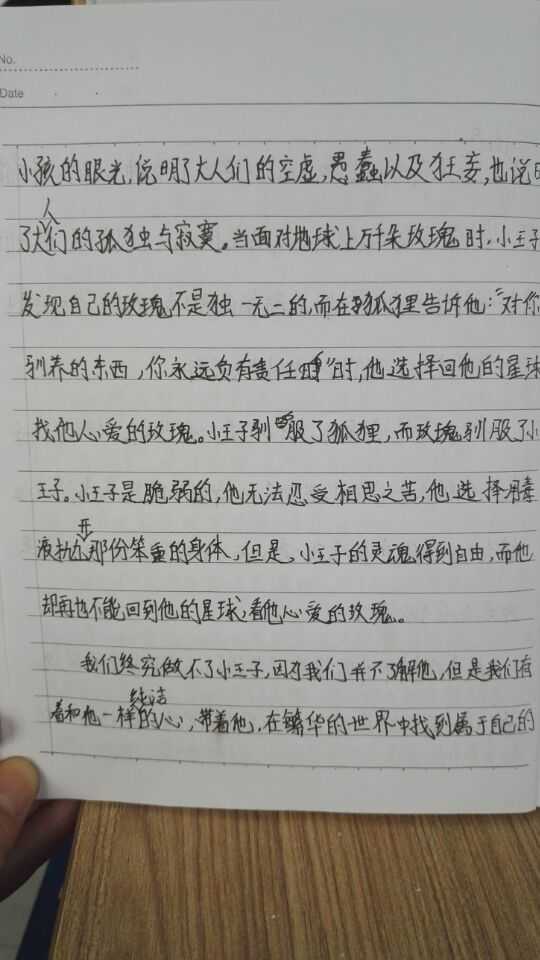 No.
Date
小孩的眼光,说明了大人们的空虚,愚蠢以及狂妄,也说明
了大人们的孤独与寂寞。当面对地球上万千朵玫瑰时,小王子
发现自己的玫瑰不是独一无二的,而在狐狸告诉他:“对你
驯养的东西,你永远负有责任”时,他选择回他的星球
找他心爱的玫瑰。小王子驯服了狐狸,而玫瑰驯服了小
王子。小王子是脆弱的,他无法忍受相思之苦,他选择用毒
液抛开那份笨重的身体,但是,小王子的灵魂得到自由,而他
却再也不能回到他的星球,看他心爱的玫瑰。
我们终究做不了小王子,因为我们并不了解他,但是我们有
着和他一样纯洁的心,带着他,在繁华的世界中找到属于自己的